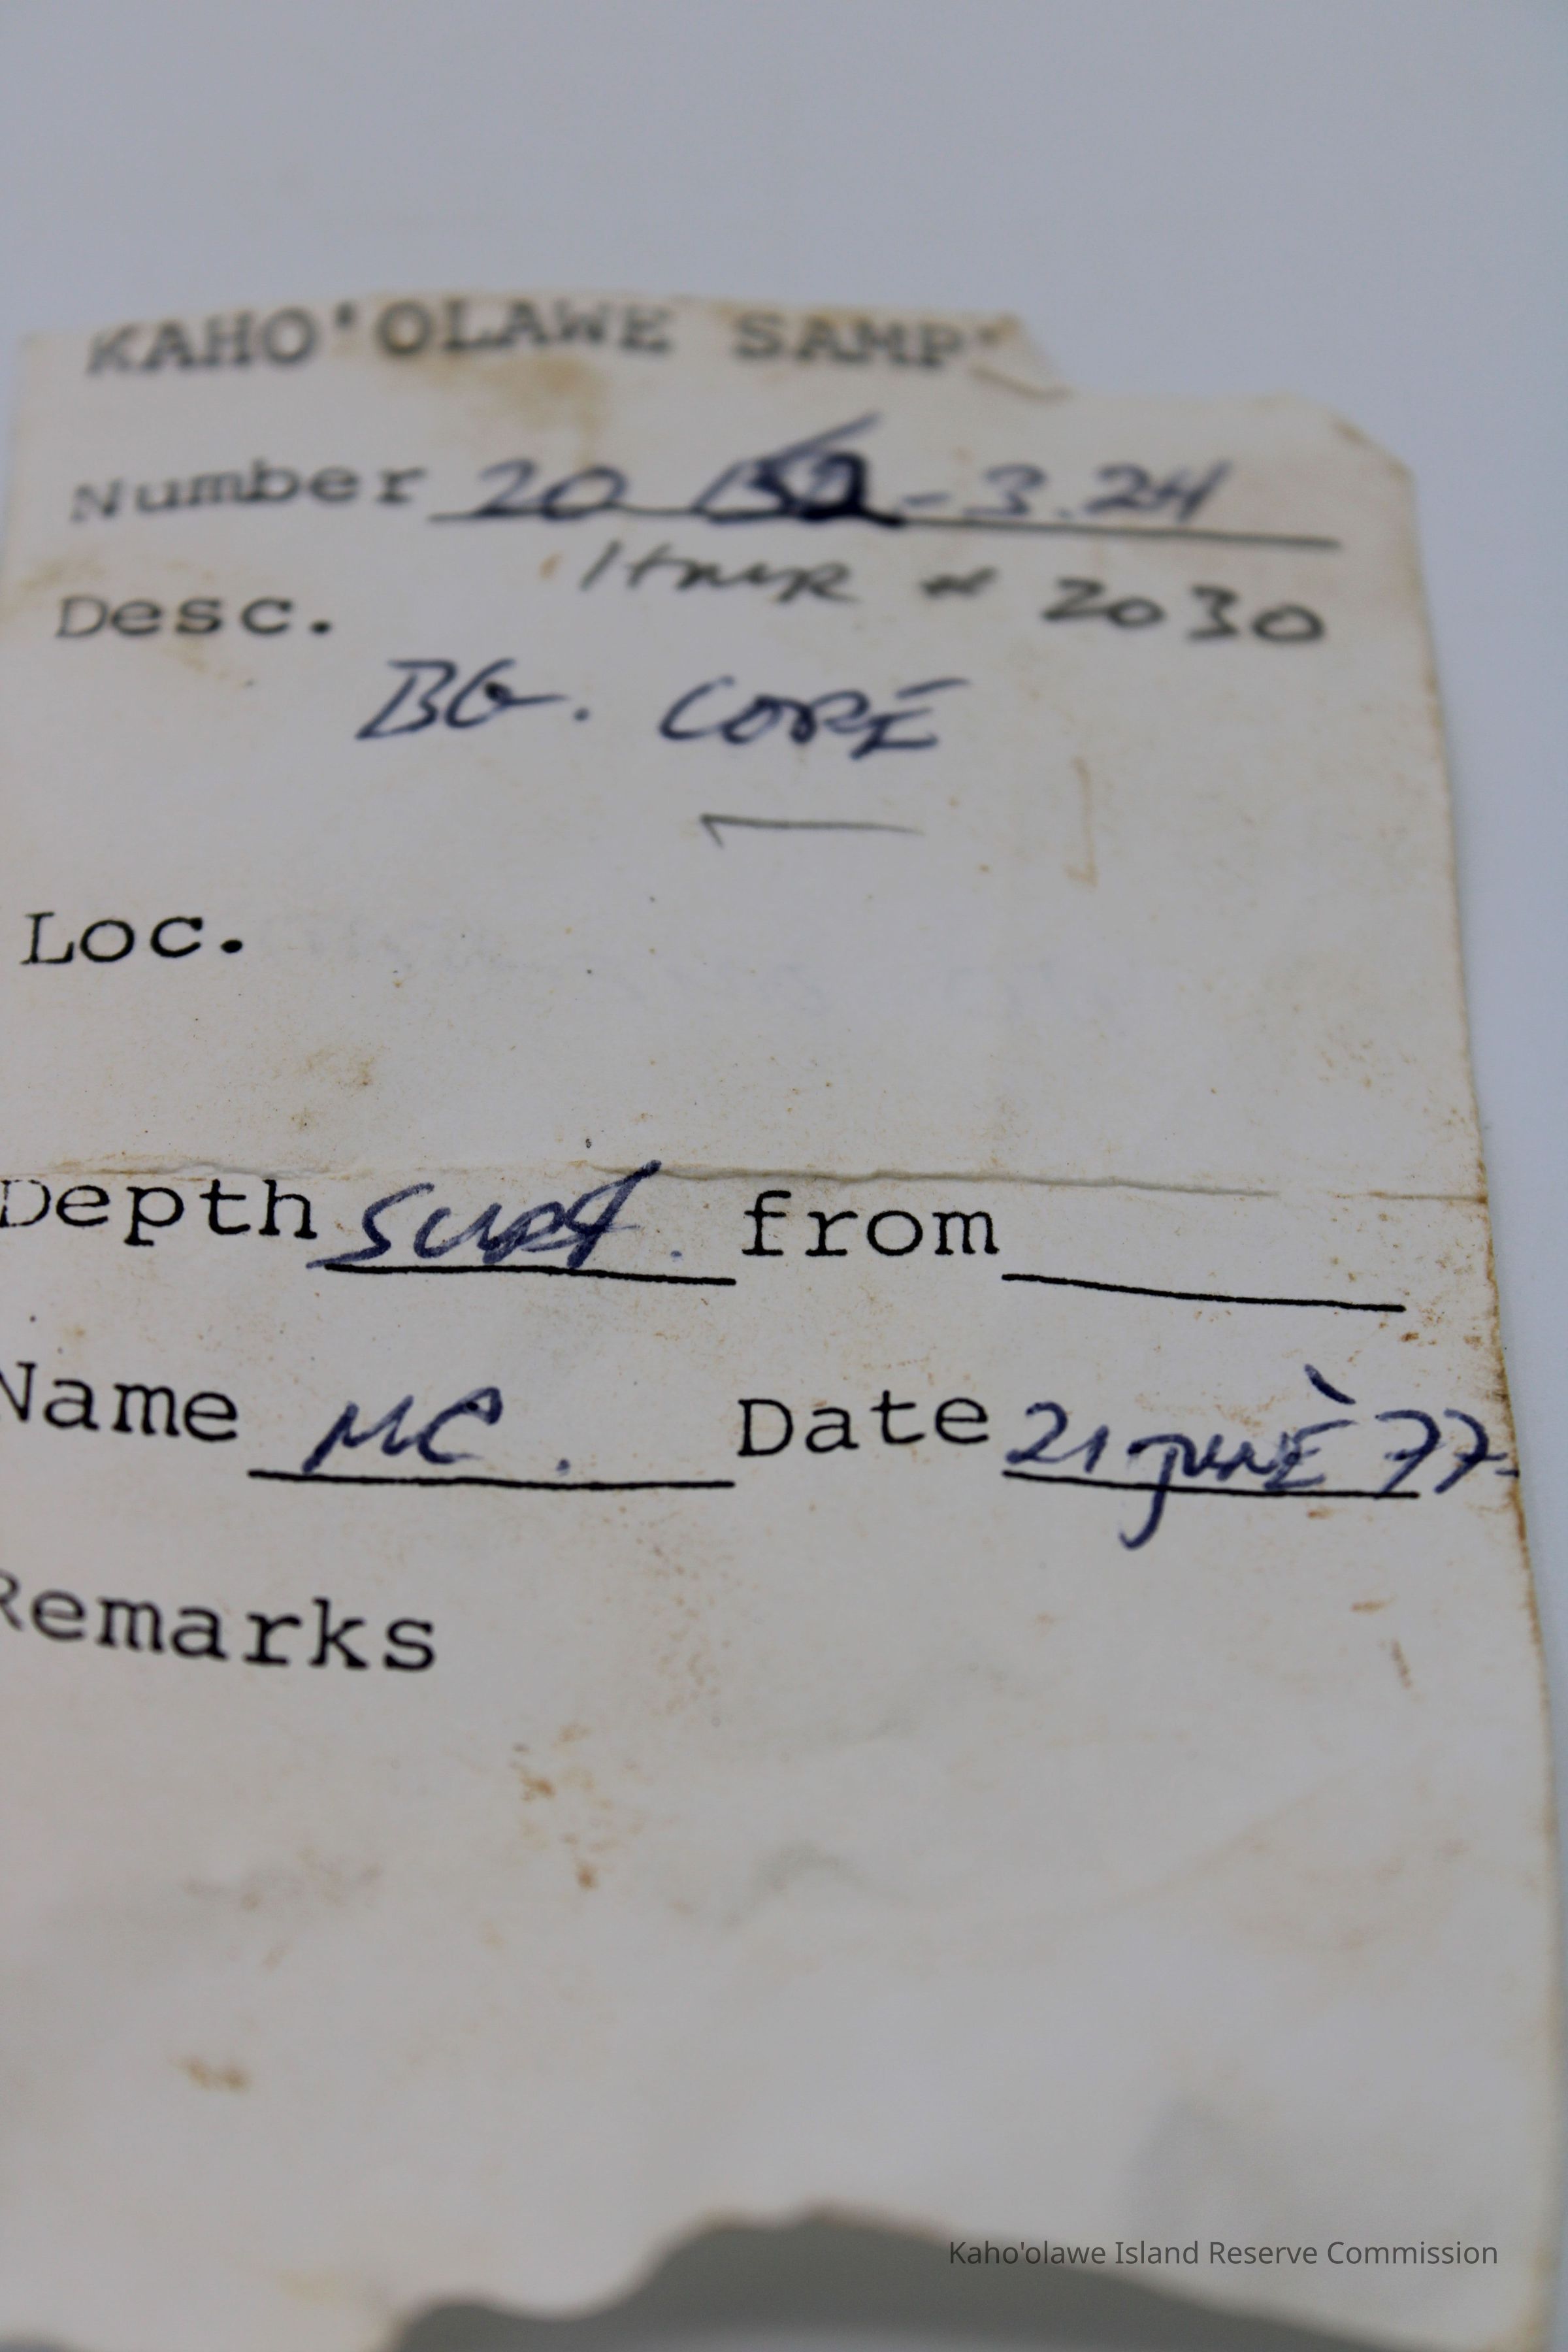 KAHO'OLAWE SAMP
Number 20 - 3.24
# 2030
Desc.
BG. CORE
Loc.
Depth surf. from
Name MC. Date 21 JUNE 77.
Remarks
Kaho'olawe Island Reserve Commission